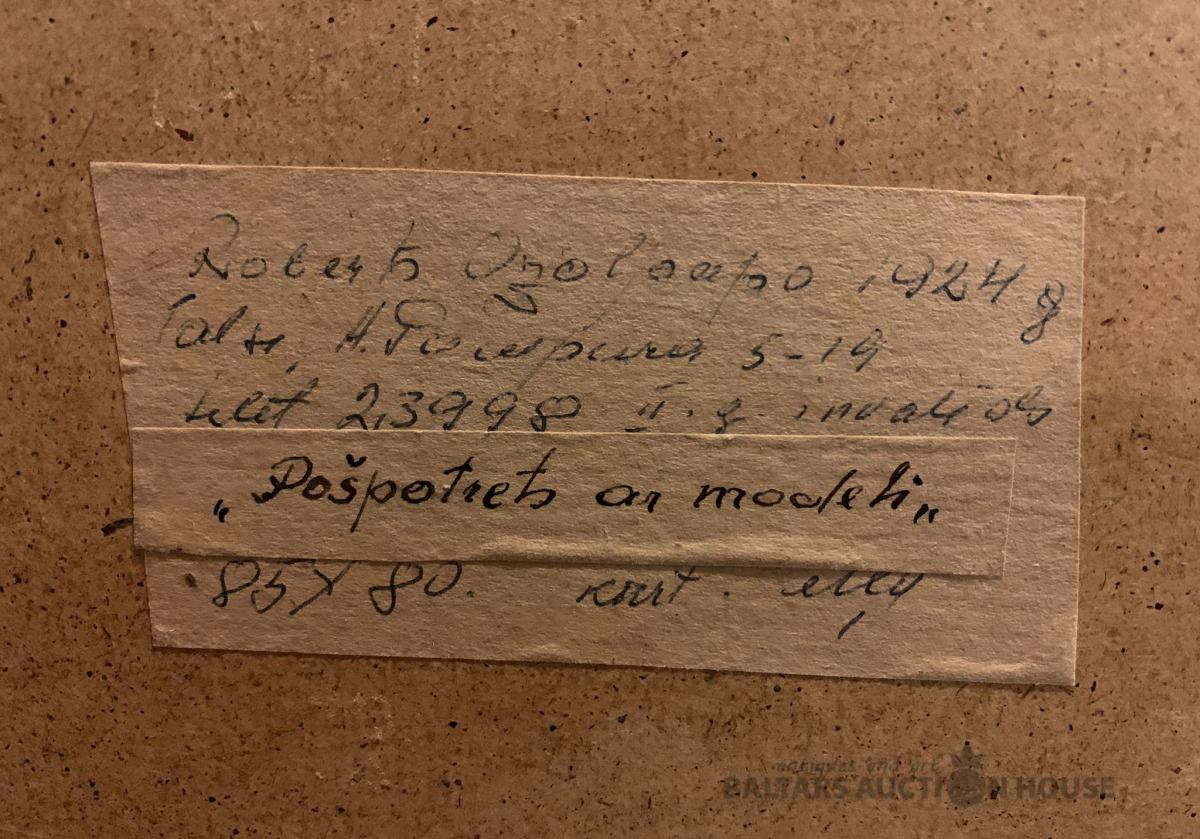 Roberts Ozollapo 1924 g
Talsi, A. Pumpura 5-19
telef 23998 II. g. invalids
„Pošpotrets ar modeli„
85X80. kart. eļļa
antiques and art
BALTARS AUCTION HOUSE